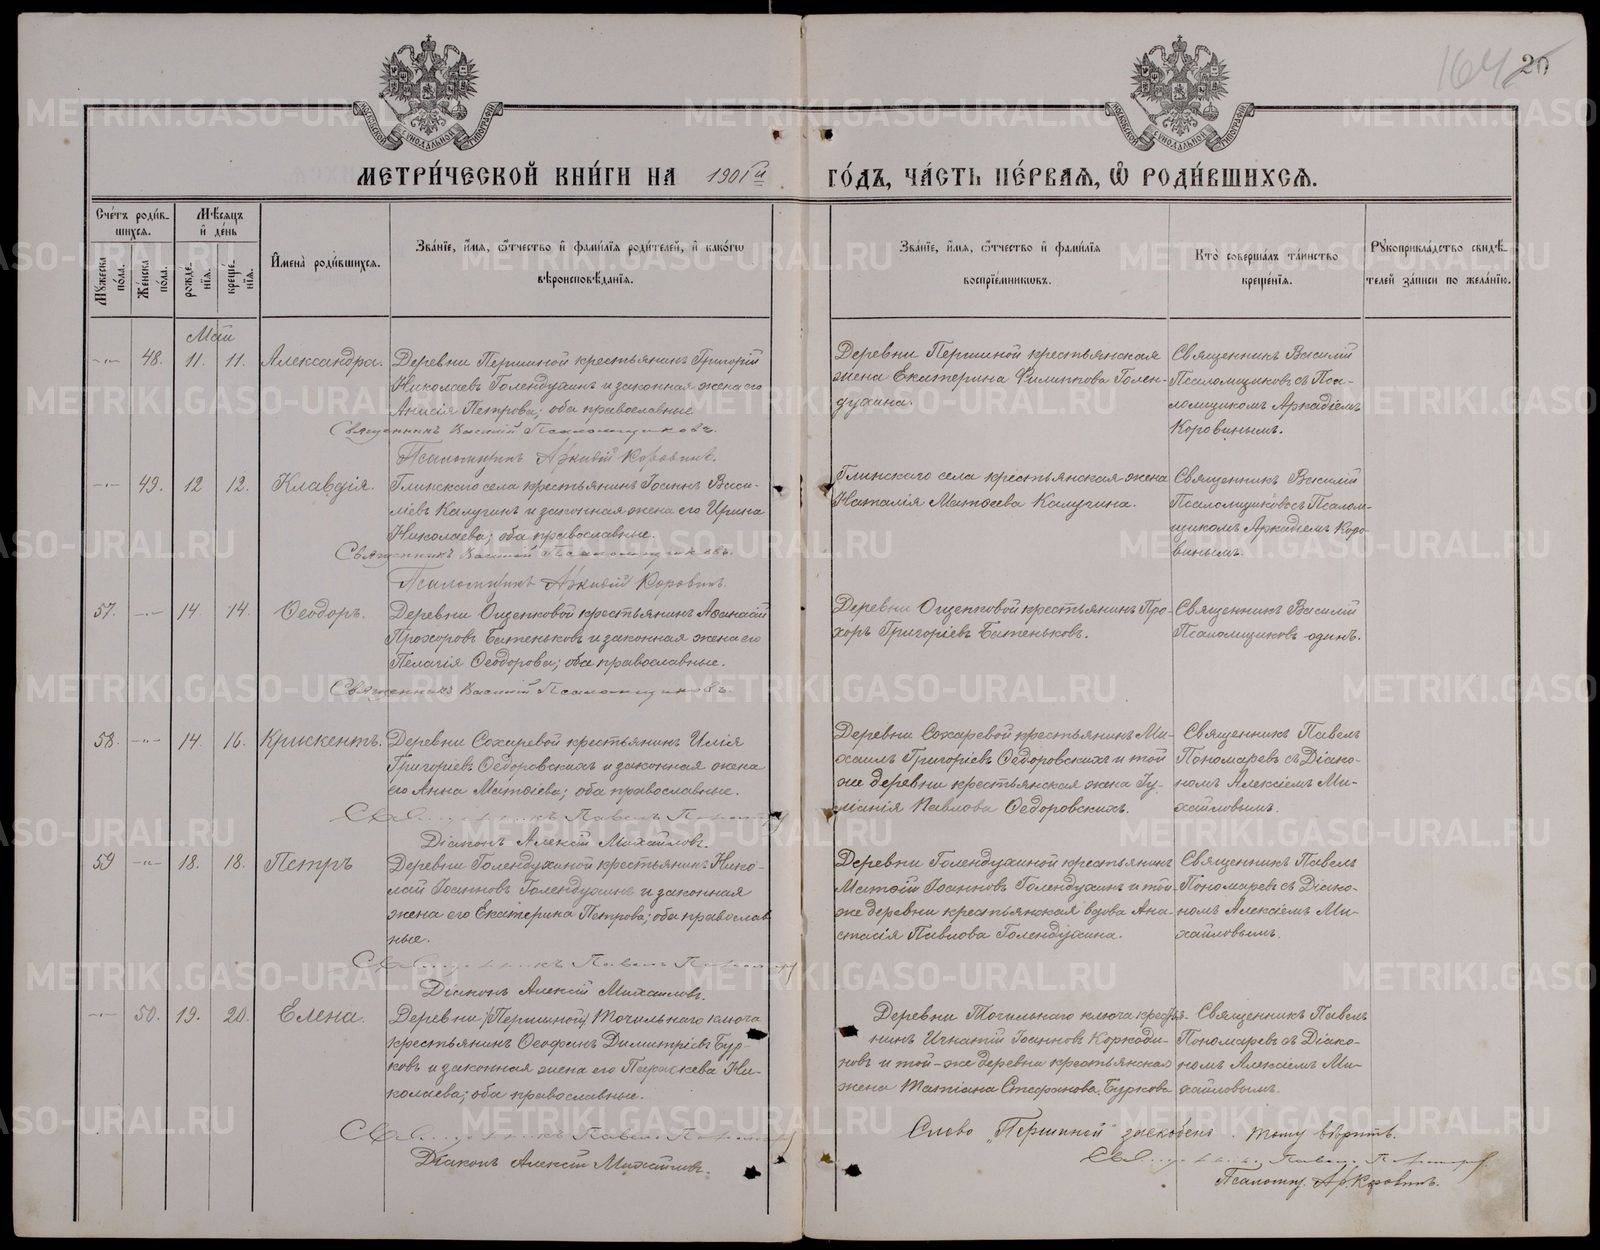 164
20
МОСКОВСКОЙ СУНОДАЛЬНОЙ ТИПОГРАФІИ
МОСКОВСКОЙ СУНОДАЛЬНОЙ ТИПОГРАФІИ
МЕТРИ́ЧЕСКОЙ КНИ́ГИ НА 1901й ГО́ДЪ, ЧА́СТЬ ПЕ́РВАЯ, Ѡ РОДИ́ВШИХСЯ.
Сче́тъ роди́в-
шихся.
Мꙋжеска по́ла.
Же́нска по́ла.
Мѣ́сяцъ и де́нь
рожде́нія.
креще́нія.
И́мена̀ роди́вшихся.
Зва́ніе, и́мя, ѻ҆́тчество и҆ фами́лія роди́телей, и҆ како́гѡ
вѣроисповѣ́данія.
Зва́ніе, и́мя, ѻ҆́тчество и҆ фами́лія
воспріе́мниковъ.
Кто̀ соверша́лъ та́инство
креще́нія.
Рꙋкоприкла́дство свидѣ́-
телей за́писи по жела́нію.
Май
-"- 48. 11. 11. Александра.
Деревни Першиной крестьянинъ Григорій
Николаевъ Голендухинъ и законная жена его
Анисія Петрова; оба православные
Священникъ Василій Псаломщиковъ.
Псаломщикъ Аркадій Коровинъ.
Деревни Першиной крестьянская
жена Екатерина Филиппова Голен-
духина.
Священникъ Василій
Псаломщиковъ съ Пса-
ломщикомъ Аркадіемъ
Коровинымъ.
-"- 49. 12 12. Клавдія.
Глинскаго села крестьянинъ Іоаннъ Васи-
ліевъ Калугинъ и законная жена его Ирина
Николаева; оба православные.
Священникъ Василій Псаломщиковъ.
Псаломщикъ Аркадій Коровинъ.
Глинскаго села крестьянская жена
Наталія Матѳеева Калугина.
Священникъ Василій
Псаломщиковъ съ Псалом-
щикомъ Аркадіемъ Коро-
винымъ.
57. -"- 14 14. Ѳеодоръ.
Деревни Ощепковой крестьянинъ Аѳанасій
Прохоровъ Батеньковъ и законная жена его
Пелагія Ѳеодорова; оба православные.
Священникъ Василій Псаломщиковъ.
Деревни Ощепковой крестьянинъ Про-
хоръ Григоріевъ Батеньковъ.
Священникъ Василій
Псаломщиковъ одинъ.
58. -"- 14. 16. Крискентъ.
Деревни Сохаревой крестьянинъ Илія
Григоріевъ Ѳедоровскихъ и законная жена
его Анна Матѳіева; оба православные.
Священникъ Павелъ Пономаревъ
Діаконъ Алексій Михайловъ.
Деревни Сохаревой крестьянинъ Ми-
хаилъ Григоріевъ Ѳедоровскихъ и той
же деревни крестьянская жена Іу-
ліанія Павлова Ѳедоровскихъ.
Священникъ Павелъ
Пономаревъ съ Діако-
номъ Алексіемъ Ми-
хайловымъ.
59 -"- 18. 18. Петръ
Деревни Голендухиной крестьянинъ Нико-
лай Іоанновъ Голендухинъ и законная
жена его Екатерина Петрова; оба православ
ные.
Священникъ Павелъ Пономаревъ
Діаконъ Алексій Михайловъ.
Деревни Голендухиной крестьянинъ
Матѳій Іоанновъ Голендухинъ и той-
же деревни крестьянская вдова Ана-
стасія Павлова Голендухина.
Священникъ Павелъ
Пономаревъ съ Діако-
номъ Алексіемъ Ми-
хайловымъ.
-"- 50. 19. 20. Елена.
Деревни (Першиной) Точильнаго ключа
крестьянинъ Ѳеофанъ Димитріевъ Бур-
ковъ и законная жена его Параскева Ни-
колаева; оба православные.
Священникъ Павелъ Пономаревъ
Діаконъ Алексій Михайловъ.
Деревни Точильнаго ключа крестья-
нинъ Игнатій Іоанновъ Коркоди-
новъ и той-же деревни крестьянская
жена Татіана Стефанова Буркова
Священникъ Павелъ
Пономаревъ съ Діако-
номъ Алексіемъ Ми-
хайловымъ.
Слово „Першиной" заскоблено. тому вѣрить.
Священникъ Павелъ Пономаревъ.
Псаломщ. Ар. Коровинъ.
METRIKI.GASO-URAL.RU